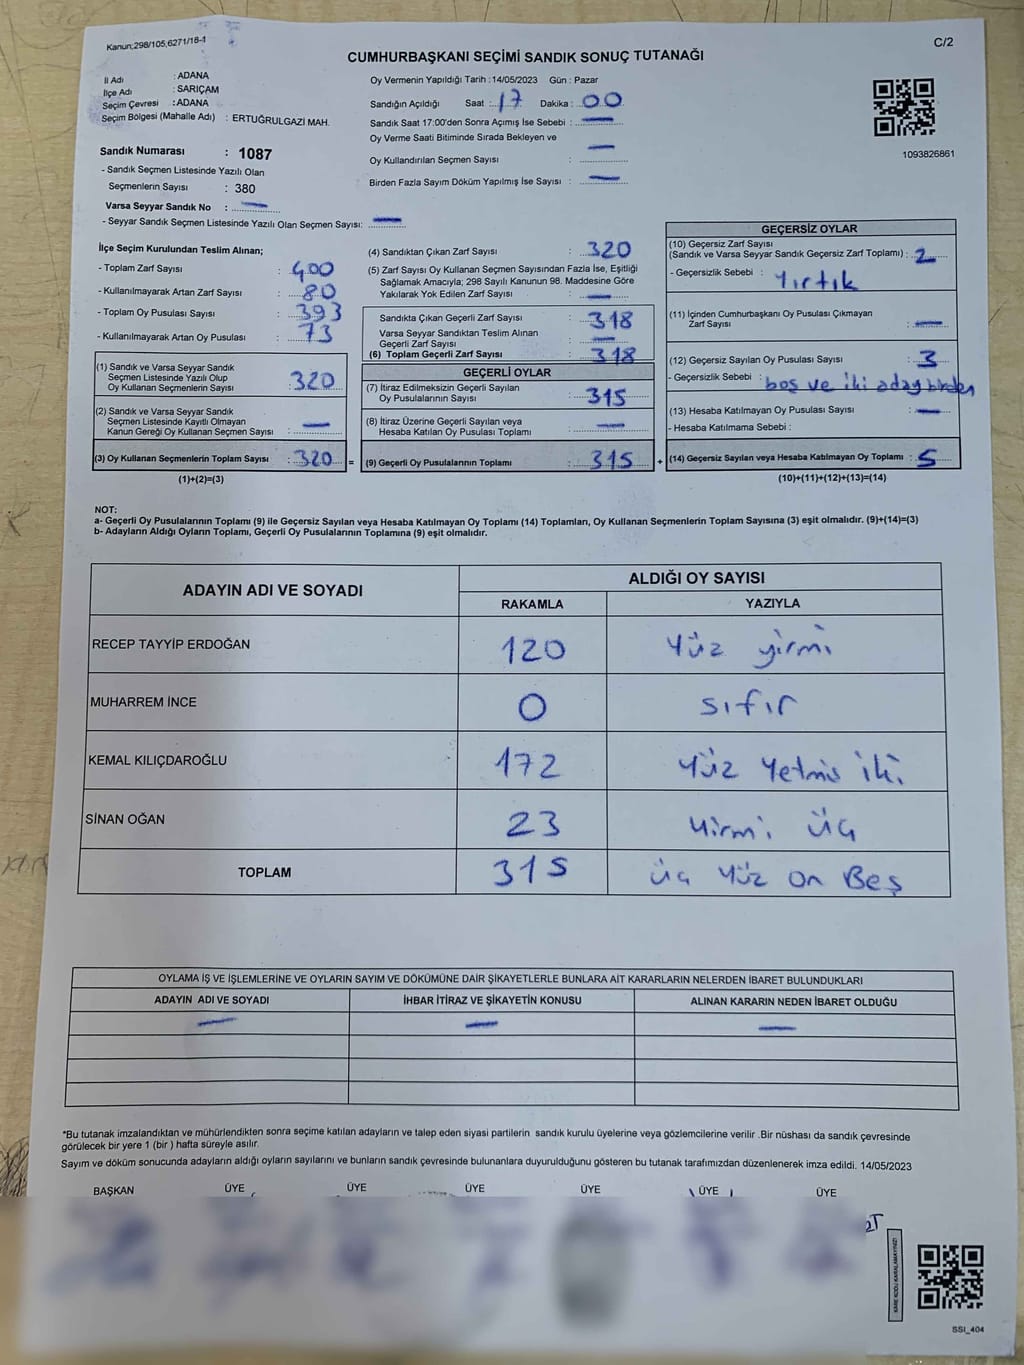 Kanun;298/105;6271/18-1
C/2
CUMHURBAŞKANI SEÇİMİ SANDIK SONUÇ TUTANAĞI
İl Adı : ADANA
İlçe Adı : SARIÇAM
Seçim Çevresi : ADANA
Seçim Bölgesi (Mahalle Adı) : ERTUĞRULGAZİ MAH.
Oy Vermenin Yapıldığı Tarih : 14/05/2023 Gün : Pazar
Sandığın Açıldığı Saat : 17 Dakika : 00
Sandık Saat 17:00'den Sonra Açımış İse Sebebi : —
Oy Verme Saati Bitiminde Sırada Bekleyen ve
Oy Kullandırılan Seçmen Sayısı : —
Birden Fazla Sayım Döküm Yapılmış İse Sayısı : —
1093826861
Sandık Numarası : 1087
- Sandık Seçmen Listesinde Yazılı Olan
Seçmenlerin Sayısı : 380
Varsa Seyyar Sandık No : —
- Seyyar Sandık Seçmen Listesinde Yazılı Olan Seçmen Sayısı: —
İlçe Seçim Kurulundan Teslim Alınan;
- Toplam Zarf Sayısı : 400
- Kullanılmayarak Artan Zarf Sayısı : 80
- Toplam Oy Pusulası Sayısı : 393
- Kullanılmayarak Artan Oy Pusulası : 73
(1) Sandık ve Varsa Seyyar Sandık
Seçmen Listesinde Yazılı Olup
Oy Kullanan Seçmenlerin Sayısı : 320
(2) Sandık ve Varsa Seyyar Sandık
Seçmen Listesinde Kayıtlı Olmayan
Kanun Gereği Oy Kullanan Seçmen Sayısı : —
(3) Oy Kullanan Seçmenlerin Toplam Sayısı : 320 =
(1)+(2)=(3)
(4) Sandıktan Çıkan Zarf Sayısı : 320
(5) Zarf Sayısı Oy Kullanan Seçmen Sayısından Fazla İse, Eşitliği
Sağlamak Amacıyla; 298 Sayılı Kanunun 98. Maddesine Göre
Yakılarak Yok Edilen Zarf Sayısı : —
Sandıkta Çıkan Geçerli Zarf Sayısı : 318
Varsa Seyyar Sandıktan Teslim Alınan
Geçerli Zarf Sayısı : —
(6) Toplam Geçerli Zarf Sayısı : 318
GEÇERLİ OYLAR
(7) İtiraz Edilmeksizin Geçerli Sayılan
Oy Pusulalarının Sayısı : 315
(8) İtiraz Üzerine Geçerli Sayılan veya
Hesaba Katılan Oy Pusulası Toplamı : —
(9) Geçerli Oy Pusulalarının Toplamı : 315 +
GEÇERSİZ OYLAR
(10) Geçersiz Zarf Sayısı
(Sandık ve Varsa Seyyar Sandık Geçersiz Zarf Toplamı) : 2
- Geçersizlik Sebebi : Yırtık
(11) İçinden Cumhurbaşkanı Oy Pusulası Çıkmayan
Zarf Sayısı : —
(12) Geçersiz Sayılan Oy Pusulası Sayısı : 3
- Geçersizlik Sebebi : boş ve iki aday birden
(13) Hesaba Katılmayan Oy Pusulası Sayısı : —
- Hesaba Katılmama Sebebi :
(14) Geçersiz Sayılan veya Hesaba Katılmayan Oy Toplamı : 5
(10)+(11)+(12)+(13)=(14)
NOT:
a- Geçerli Oy Pusulalarının Toplamı (9) ile Geçersiz Sayılan veya Hesaba Katılmayan Oy Toplamı (14) Toplamları, Oy Kullanan Seçmenlerin Toplam Sayısına (3) eşit olmalıdır. (9)+(14)=(3)
b- Adayların Aldığı Oyların Toplamı, Geçerli Oy Pusulalarının Toplamına (9) eşit olmalıdır.
ADAYIN ADI VE SOYADI
ALDIĞI OY SAYISI
RAKAMLA YAZIYLA
RECEP TAYYİP ERDOĞAN 120 Yüz yirmi
MUHARREM İNCE 0 sıfır
KEMAL KILIÇDAROĞLU 172 Yüz Yetmiş iki
SİNAN OĞAN 23 Yirmi üç
TOPLAM 315 üç yüz on Beş
OYLAMA İŞ VE İŞLEMLERİNE VE OYLARIN SAYIM VE DÖKÜMÜNE DAİR ŞİKAYETLERLE BUNLARA AİT KARARLARIN NELERDEN İBARET BULUNDUKLARI
ADAYIN ADI VE SOYADI İHBAR İTİRAZ VE ŞİKAYETİN KONUSU ALINAN KARARIN NEDEN İBARET OLDUĞU
— — —
*Bu tutanak imzalandıktan ve mühürlendikten sonra seçime katılan adayların ve talep eden siyasi partilerin sandık kurulu üyelerine veya gözlemcilerine verilir .Bir nüshası da sandık çevresinde
görülecek bir yere 1 (bir ) hafta süreyle asılır.
Sayım ve döküm sonucunda adayların aldığı oyların sayılarını ve bunların sandık çevresinde bulunanlara duyurulduğunu gösteren bu tutanak tarafımızdan düzenlenerek imza edildi. 14/05/2023
BAŞKAN ÜYE ÜYE ÜYE ÜYE ÜYE ÜYE
KARE KODU KARALAMAYINIZ!
SSI_404